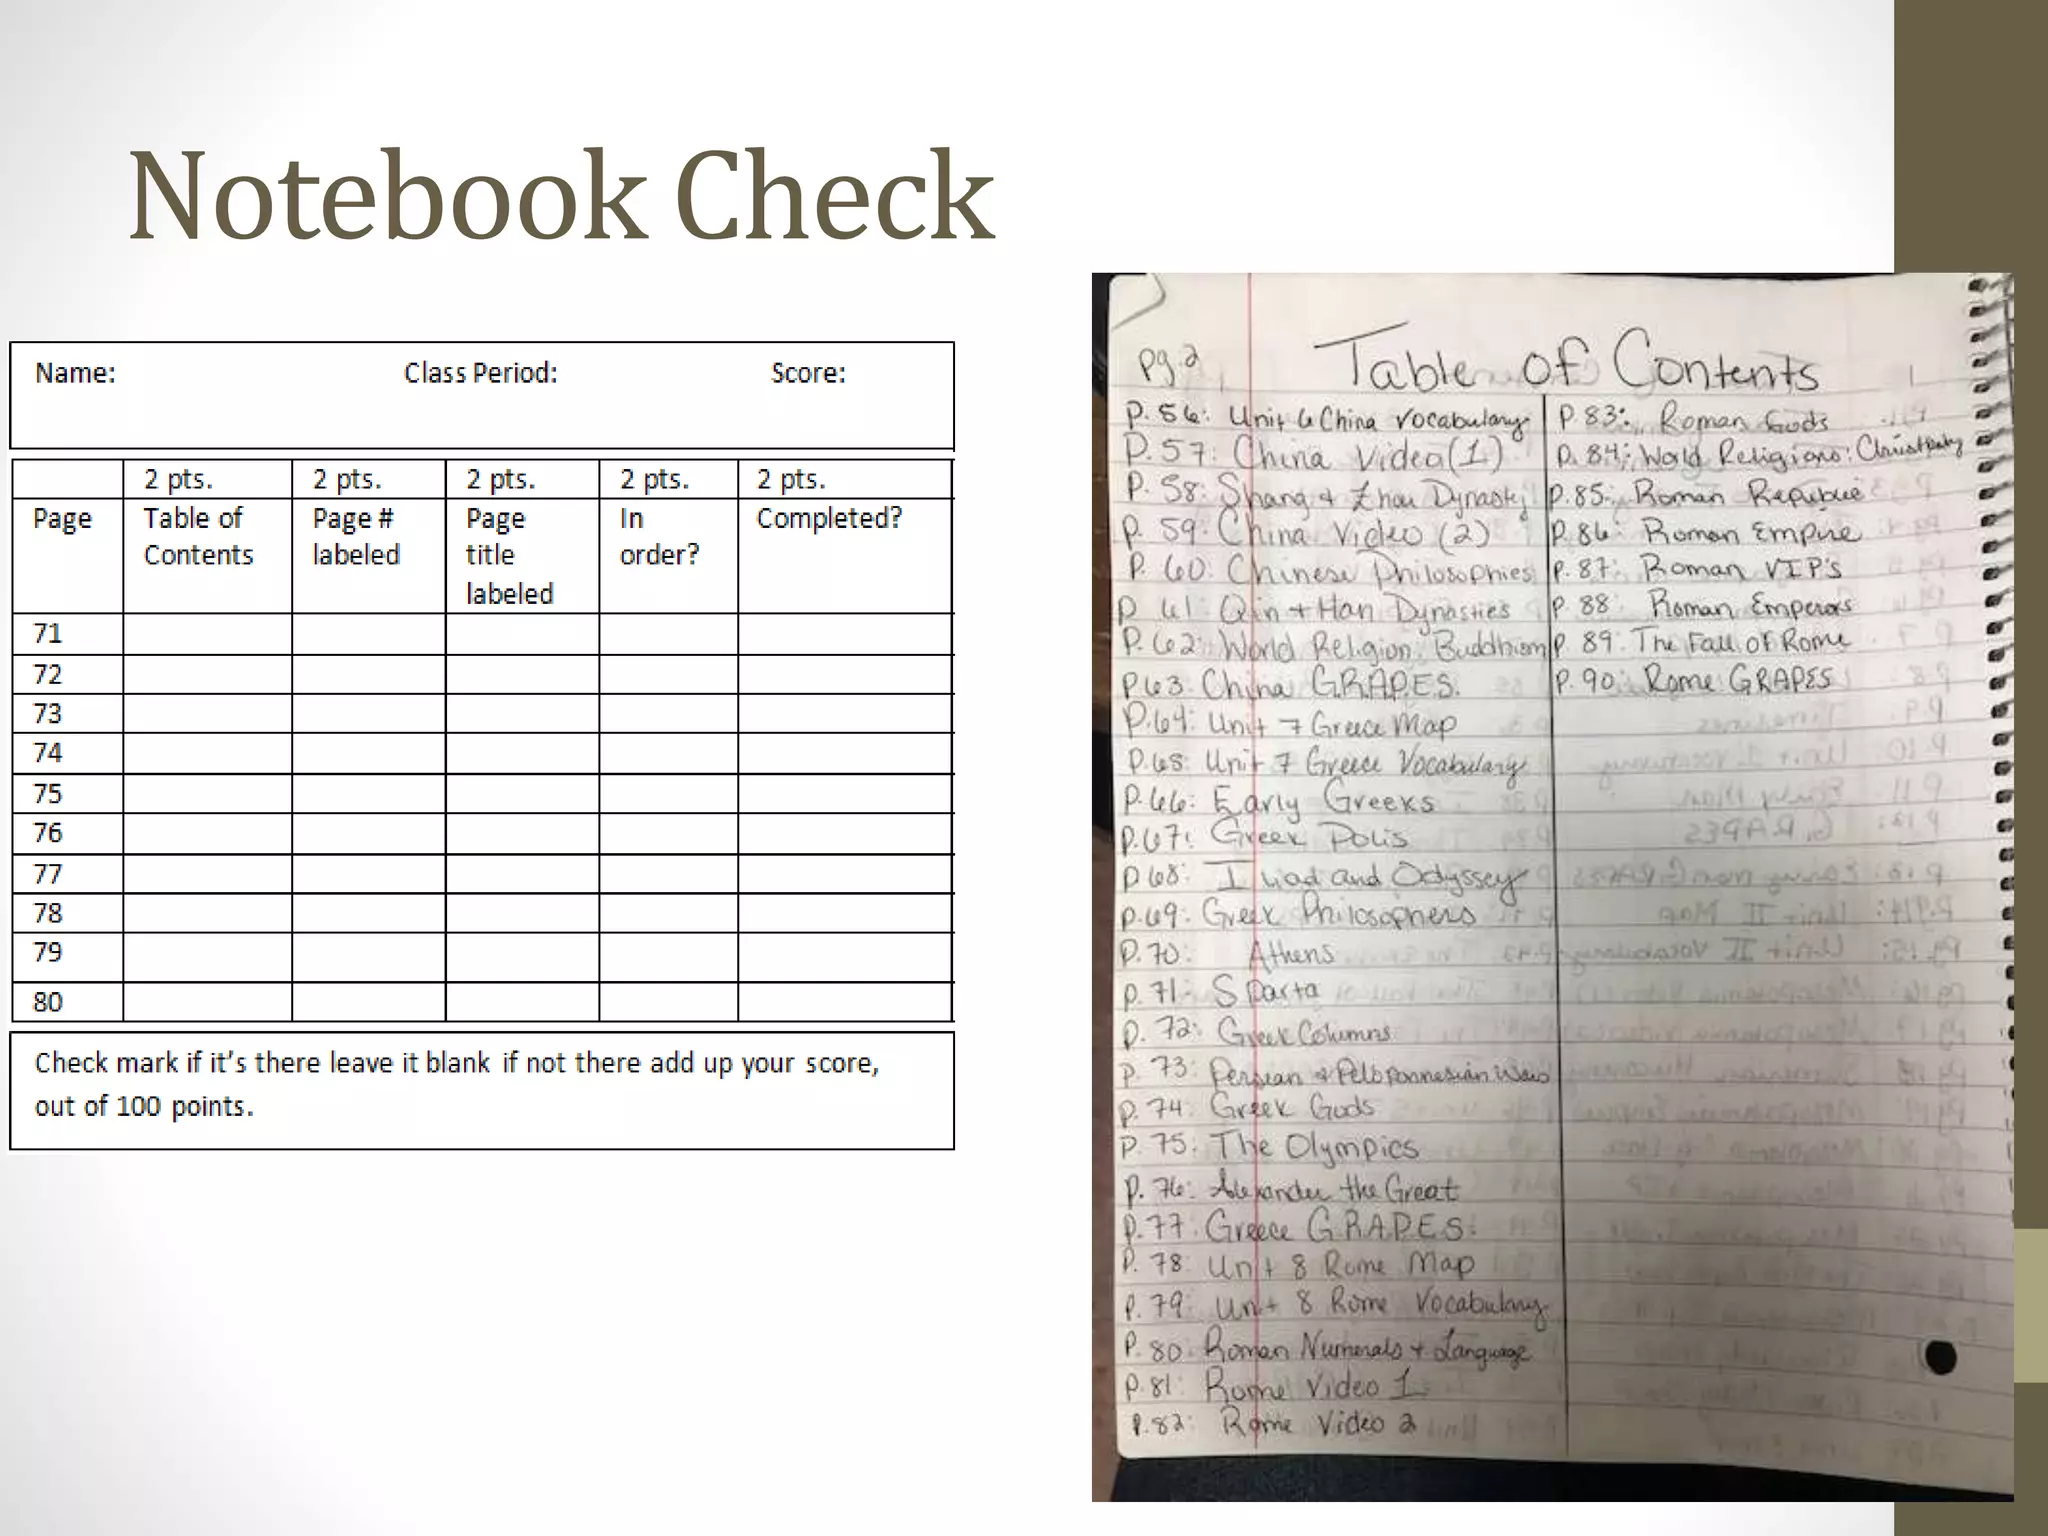 Notebook Check
Name: Class Period: Score:
2 pts. 2 pts. 2 pts. 2 pts. 2 pts.
Page Table of Contents Page # labeled Page title labeled In order? Completed?
71
72
73
74
75
76
77
78
79
80
Check mark if it's there leave it blank if not there add up your score,
out of 100 points.
pg.2 Table of Contents
P.56: Unit 6 China Vocabulary
P.57: China Video (1)
P. 58: Shang + Zhou Dynasty
P. 59: China Video (2)
P. 60: Chinese Philosophies
P 61: Qin + Han Dynasties
P. 62: World Religion: Buddhism
P63: China G.R.A.P.E.S.
P.64: Unit 7 Greece Map
P.65: Unit 7 Greece Vocabulary
P.66: Early Greeks
P.67: Greek Polis
P 68: Iliad and Odyssey
P.69: Greek Philosophers
P.70: Athens
P.71: Sparta
P. 72: Greek Columns
P. 73: Persian + Peloponnesian Wars
P. 74: Greek Gods
P. 75: The Olympics
P. 76: Alexander the Great
P.77: Greece G.R.A.P.E.S.
P. 78: Unit 8 Rome Map
P. 79: Unit 8 Rome Vocabulary
P. 80: Roman Numerals + Language
P.81: Rome Video 1
P.82: Rome Video 2
P.83: Roman Gods
P. 84: World Religions: Christianity
P.85: Roman Republic
P.86: Roman Empire
P. 87: Roman VIP's
P. 88: Roman Emperors
P. 89: The Fall of Rome
P. 90: Rome GRAPES